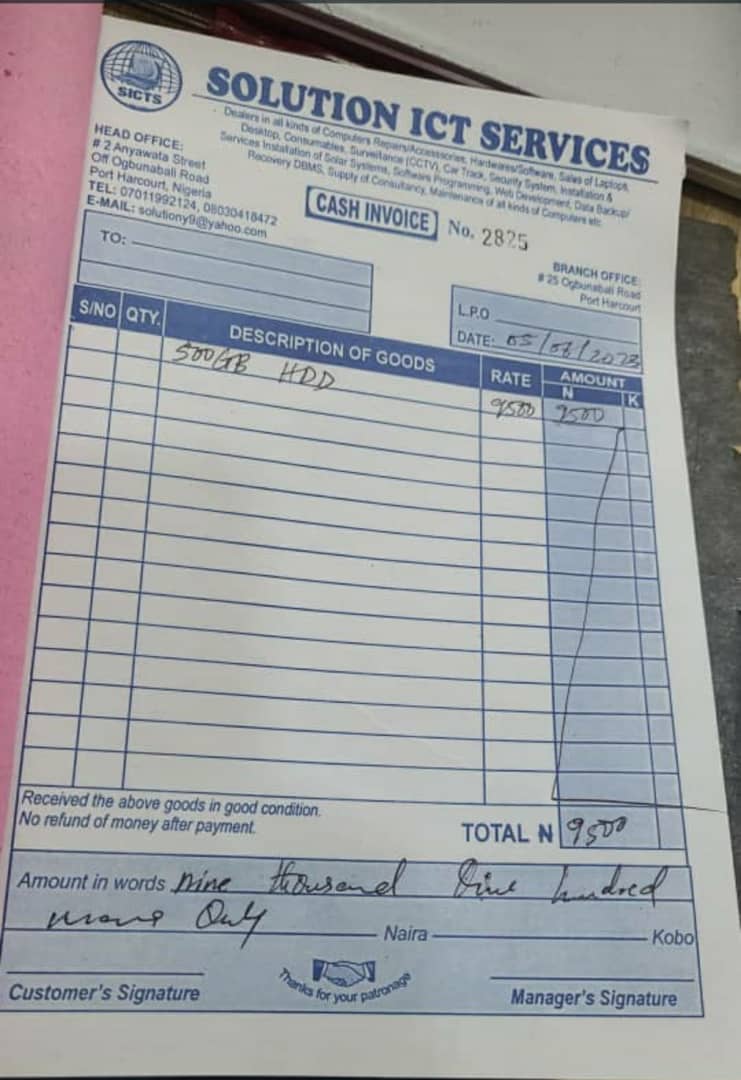 SICTS
SOLUTION ICT SERVICES
Dealers in all kinds of Computers Repairs/Accesssories, Hardwares/Software, Sales of Laptops,
Desktop, Consumables, Surveilance (CCTV), Car Track, Security System, Installation &
Services Installation of Solar Systems, Software Programming, Web Development, Data Backup/
Recovery DBMS, Supply of Consultancy, Maintenance of all kinds of Computers etc
HEAD OFFICE:
# 2 Anyawata Street
Off Ogbunabali Road
Port Harcourt, Nigeria
TEL: 07011992124, 08030418472
E-MAIL: solutiony9@yahoo.com
CASH INVOICE No. 2825
BRANCH OFFICE:
# 25 Ogbunabali Road
Port Harcourt
TO:
L.P.O
DATE: 05/08/2023
S/NO QTY. DESCRIPTION OF GOODS RATE AMOUNT
N K
500GB HDD 9500 9500
Received the above goods in good condition.
No refund of money after payment.
TOTAL N 9500
Amount in words Nine thousand five hundred
Only Naira Kobo
Thanks for your patronage
Customer's Signature Manager's Signature